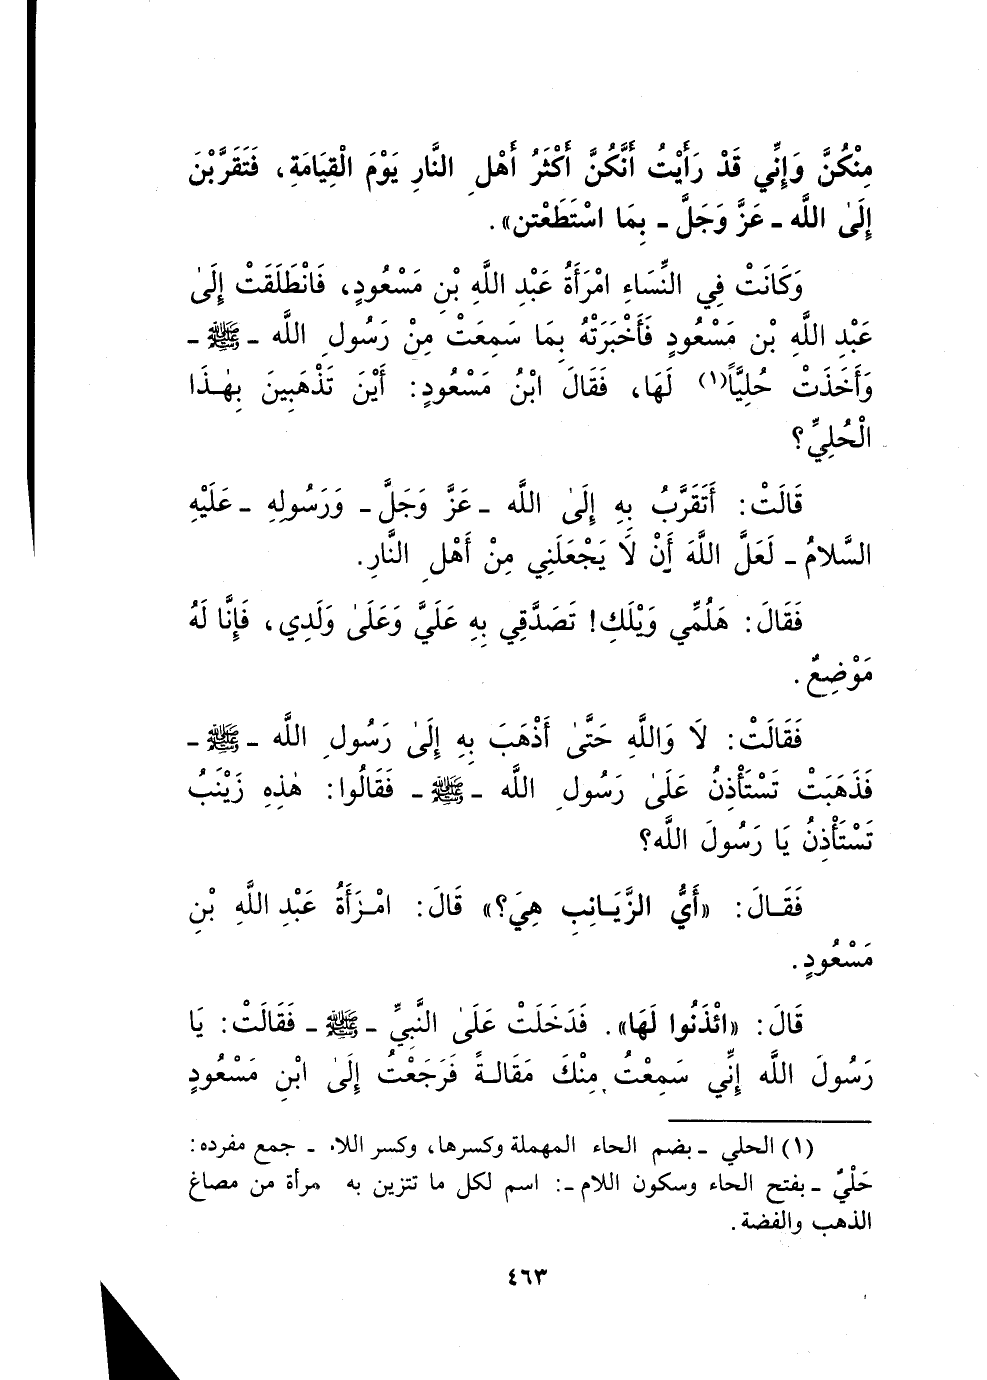 مِنْكُنَّ وَإِنِّي قَدْ رَأَيْتُ أَنَّكُنَّ أَكْثَرُ أَهْلِ النَّارِ يَوْمَ الْقِيَامَةِ، فَتَقَرَّبْنَ
إِلَىٰ اللَّه ـ عَزَّ وَجَلَّ ـ بِمَا اسْتَطَعْتن».
وَكَانَتْ فِي النِّسَاءِ امْرَأَةُ عَبْدِ اللَّهِ بْنِ مَسْعُودٍ، فَانْطَلَقَتْ إِلَىٰ
عَبْدِ اللَّهِ بْن مَسْعُودٍ فَأَخْبَرَتْهُ بِمَا سَمِعَتْ مِنْ رَسُولِ اللَّه ـ ﷺ ـ
وَأَخَذَتْ حُلِيًّا(١) لَهَا، فَقَالَ ابْنُ مَسْعُودٍ: أَيْنَ تَذْهَبِينَ بِهٰـذَا
الْحُلِيِّ؟
قَالَتْ: أَتَقَرَّبُ بِهِ إِلَىٰ اللَّه ـ عَزَّ وَجَلَّ ـ وَرَسُولِهِ ـ عَلَيْهِ
السَّلامُ ـ لَعَلَّ اللَّهَ أَنْ لَا يَجْعَلَنِي مِنْ أَهْلِ النَّارِ.
فَقَالَ: هَلُمِّي وَيْلَكِ! تَصَدَّقِي بِهِ عَلَيَّ وَعَلَىٰ وَلَدِي، فَإِنَّا لَهُ
مَوْضِعٌ.
فَقَالَتْ: لَا وَاللَّهِ حَتَّىٰ أَذْهَبَ بِهِ إِلَىٰ رَسُولِ اللَّه ـ ﷺ ـ
فَذَهَبَتْ تَسْتَأْذِنُ عَلَىٰ رَسُولِ اللَّه ـ ﷺ ـ فَقَالُوا: هٰذِهِ زَيْنَبُ
تَسْتَأْذِنُ يَا رَسُولَ اللَّه؟
فَقَـالَ: «أَيُّ الزَّيَـانِبِ هِيَ؟» قَالَ: امْـرَأَةُ عَبْدِ اللَّهِ بْنِ
مَسْعُودٍ.
قَالَ: «ائْذَنُوا لَهَا». فَدَخَلَتْ عَلَىٰ النَّبِيِّ ـ ﷺ ـ فَقَالَتْ: يَا
رَسُولَ اللَّه إِنِّي سَمِعْتُ مِنْكَ مَقَالـةً فَرَجَعْتُ إِلَىٰ ابْنِ مَسْعُودٍ
(١) الحلي ـ بضم الحاء المهملة وكسرها، وكسر اللام ـ جمع مفرده:
حَلْيٌ ـ بفتح الحاء وسكون اللام ـ: اسم لكل ما تتزين به مرأة من مصاغ
الذهب والفضة.
٤٦٣